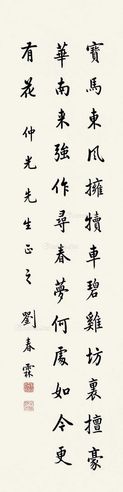 寶馬東風擁犢車碧雞坊裏擅豪
華南来強作尋春夢何處如今更
有花　仲光先生正之　劉春霖